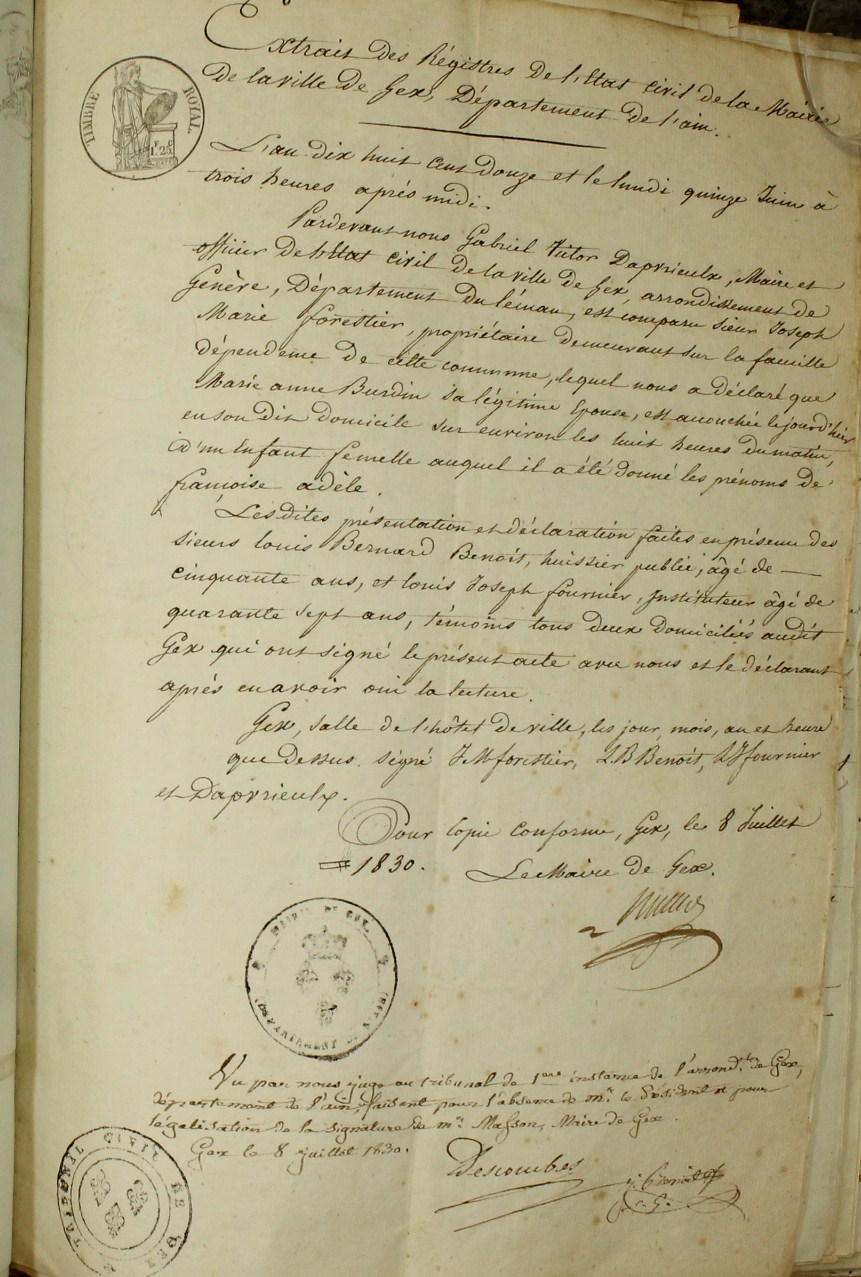 Extrait Des Régistres De l'Etat Civil de la Mairie
De la ville De Gex, Département De l'ain.
TIMBRE ROYAL
1.25
L'an dix huit Cent Douze et le lundi quinze Juin à
trois heures après midi.
Pardevant nous Gabriel Victor Daprieulx, Maire et
officier De l'Etat Civil De la ville De Gex, arrondissement De
Genève, Département Du léman, est comparu sieur Joseph
Marie forestier, propriétaire demeurant sur la faucille
dépendence de cette commune, lequel nous a déclaré que
Marie anne Burdin sa légitime Epouse, est accouchée le jour d'hier
en son dit Domicile sur environ les huit heures du matin,
d'un Enfant femelle auquel il a été donné les prénoms de
francoise adèle.
Les dites présentation et déclaration faites en présence des
sieurs louis Bernard Benoit, huissier public, âgé de
cinquante ans, et louis Joseph fournier, Instituteur âgé de
quarante sept ans, témoins tous deux Domiciliés audit
Gex qui ont signé le présent acte avec nous et le déclarant
après en avoir oui la lecture.
Gex, salle de l'hôtel de ville, les jour, mois, an et heure
que Dessus. signé J M forestier, L. B Benoit, L J fournier
et Daprieulx.
Pour Copie Conforme, Gex, le 8 Juillet
1830. Le Maire de Gex.
MAIRIE DE GEX
DEPARTEMENT DE L'AIN
Vu par nous juge au tribunal de 1ere instance de l'arrond.t de Gex,
département de l'ain, faisant pour l'absence de mr. le Président et pour
légalisation de la signature de mr. Masson, Maire de Gex.
Gex le 8 juillet 1830.
Descombes
TRIBUNAL CIVIL DE GEX